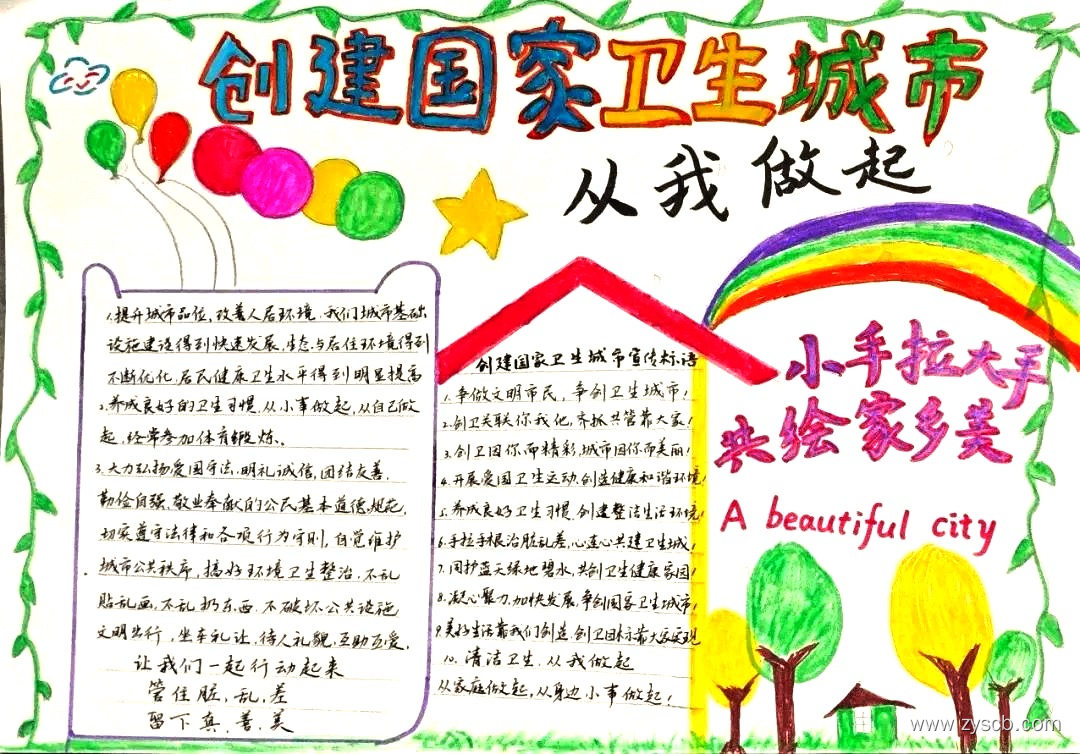 创建国家卫生城市
从我做起
1.提升城市品位,改善人居环境.我们城市基础
设施建设得到快速发展.生态与居住环境得到
不断优化.居民健康卫生水平得到明显提高
2.养成良好的卫生习惯.从小事做起,从自己做
起,经常参加体育锻炼。
3.大力弘扬爱国守法.明礼诚信,团结友善.
勤俭自强.敬业奉献的公民基本道德规范,
切实遵守法律和各项行为守则,自觉维护
城市公共秩序,搞好环境卫生整治.不乱
贴乱画,不乱扔东西.不破坏公共设施
文明出行,坐车礼让,待人礼貌,互助互爱,
让我们一起行动起来
管住脏,乱,差
留下真.善.美
创建国家卫生城市宣传标语
1.争做文明市民,争创卫生城市!
2.创卫关联你我他,齐抓共管靠大家!
3.创卫因你而精彩,城市因你而美丽!
4.开展爱国卫生运动,创造健康和谐环境!
5.养成良好卫生习惯.创建整洁生活环境!
6.手拉手根治脏乱差,心连心共建卫生城!
7.用护蓝天绿地碧水,共创卫生健康家园!
8.凝心聚力,加快发展,争创国家卫生城市!
9.美好生活靠我们创造,创卫目标靠大家实现
10.清洁卫生.从我做起
从家庭做起,从身边小事做起!
小手拉大手
共绘家乡美
A beautiful city
www.zyscb.com